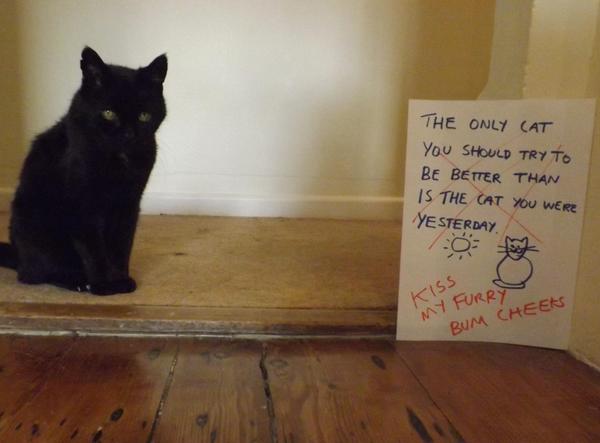 THE ONLY CAT
YOU SHOULD TRY TO
BE BETTER THAN
IS THE CAT YOU WERE
YESTERDAY.
KISS
MY FURRY
BUM CHEEKS